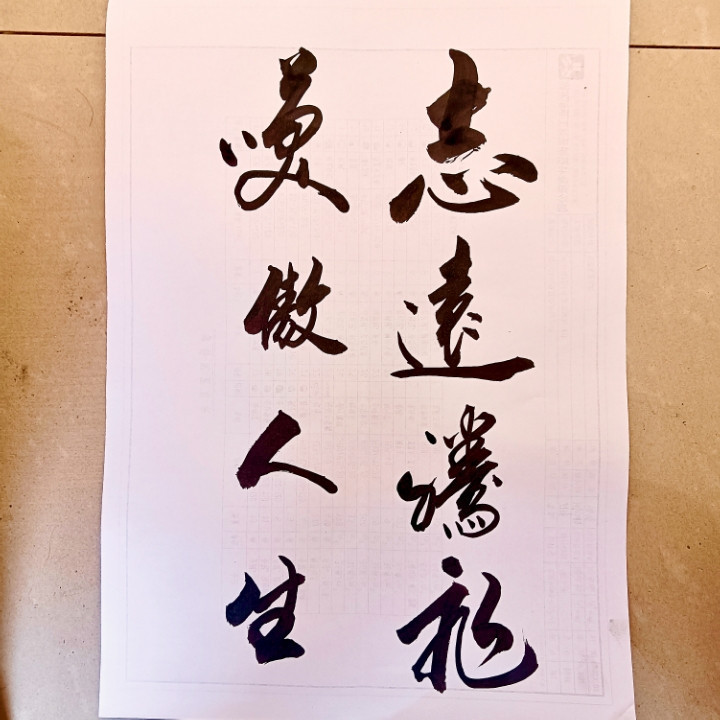 志遠騰飛
笑傲人生